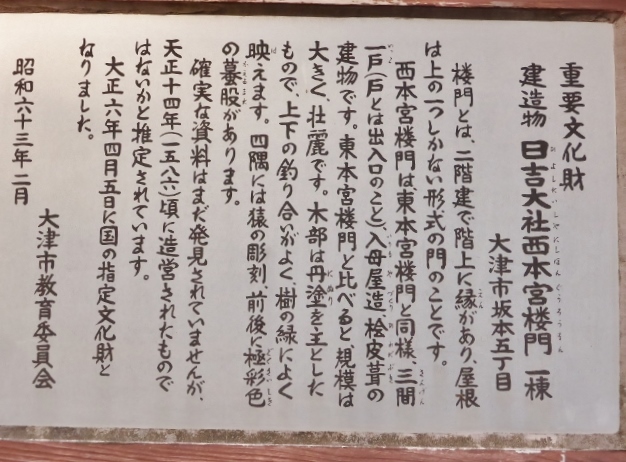 重要文化財
建造物 日吉大社西本宮楼門 一棟
大津市坂本五丁目
楼門とは、二階建で階上に縁があり、屋根
は上の一つしかない形式の門のことです。
西本宮楼門は東本宮楼門と同様、三間
一戸(戸とは出入口のこと)入母屋造、桧皮葺の
建物です。東本宮楼門と比べると、規模は
大きく、壮麗です。木部は丹塗を主とした
もので、上下の釣り合いがよく、樹の緑によく
映えます。四隅には猿の彫刻、前後に極彩色
の蟇股があります。
確実な資料はまだ発見されていませんが、
天正十四年(一五八六)頃に造営されたもので
はないかと推定されています。
大正六年四月五日に国の指定文化財と
なりました。
昭和六十三年二月
大津市教育委員会